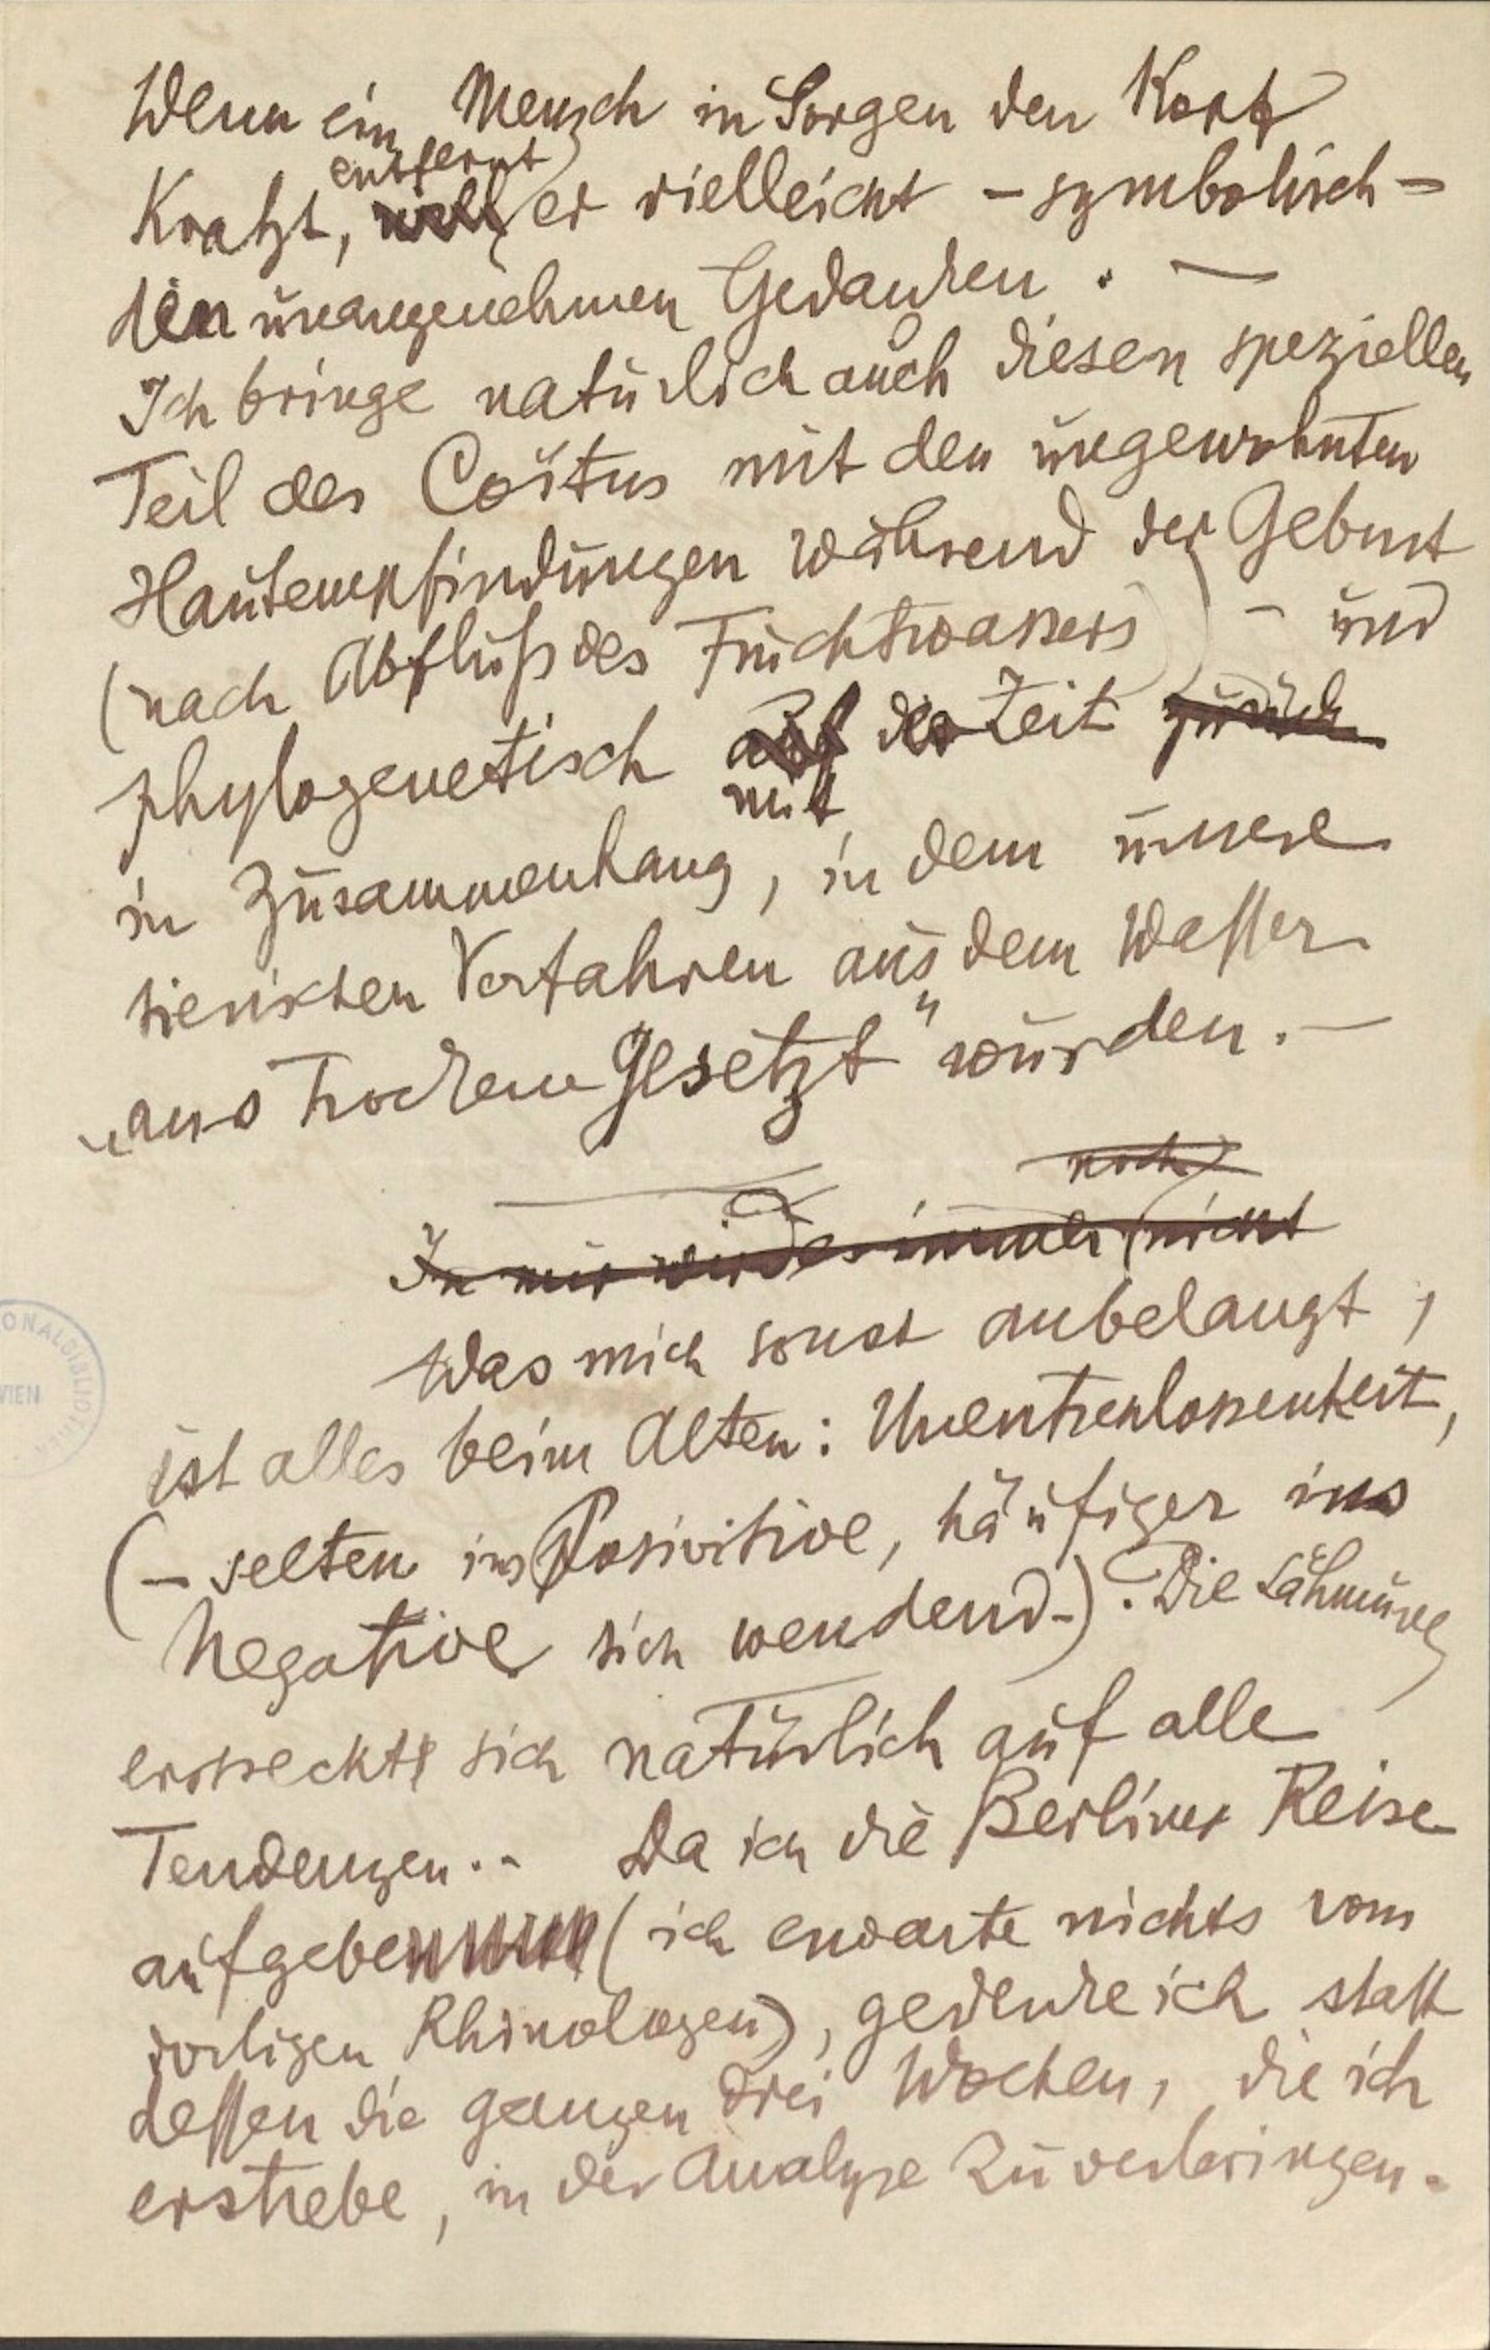 Wenn ein Mensch in Sorgen den Kopf
entfernt
Kratzt, will er vielleicht – symbolisch –
den unangenehmen Gedanken. –
Ich bringe natürlich auch diesen speziellen
Teil des Coïtus mit den ungewohnten
Hautempfindungen während der Geburt
(nach Abfluß des Fruchtwassers) – und
phylogenetisch auf der Zeit zurück
mit
in Zusammenhang, in dem unsere
tierischen Vorfahren aus dem Wasser
„ans Trockene Gesetzt“ wurden. –
noch
In mir wird es immer nicht
Was mich sonst anbelangt,
ist alles beim Alten: Unentschlossenheit,
(– selten ins Posivitive, häufiger ins
Negative sich wendend –). Die Lähmung
erstreckte sich natürlich auf alle
Tendenzen. – Da ich die Berliner Reise
aufgebe (ich erwarte nichts vom
dortigen Rhinologen), gedenke ich statt
dessen die ganzen drei Wochen, die ich
erstrebe, in der Analyse zu verbringen.
ONALBIBLIOT
WIEN